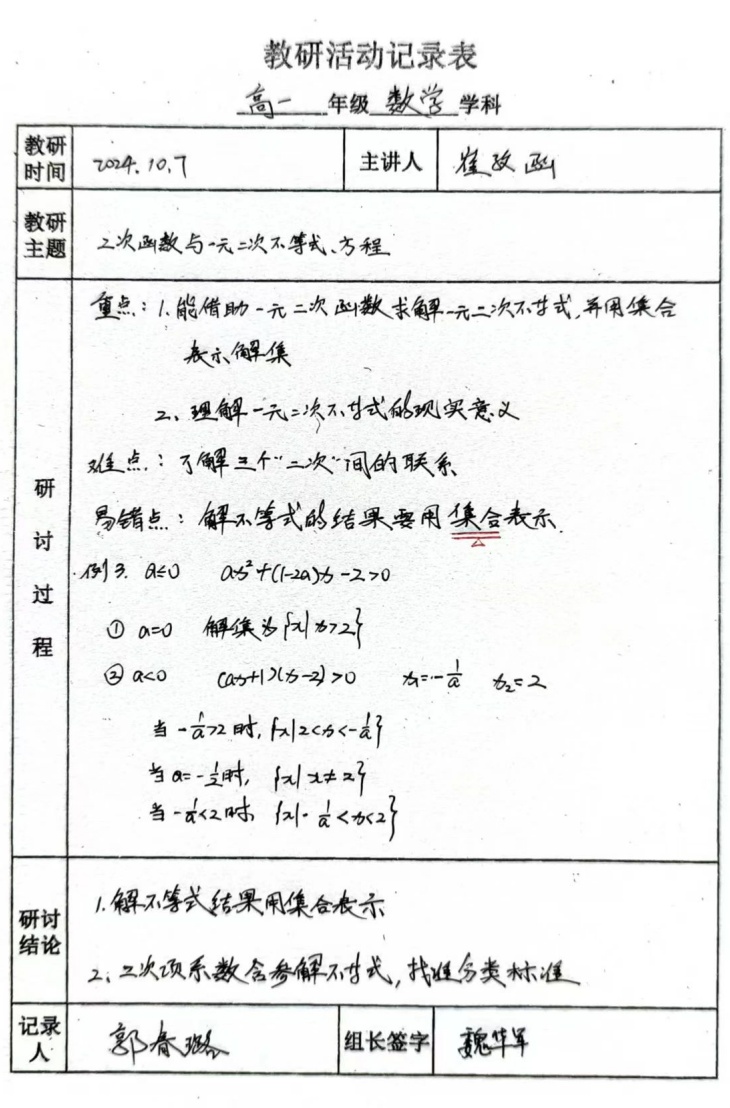 教研活动记录表
高一 年级 数学 学科
教研时间 2024.10.7 主讲人 崔政函
教研主题 二次函数与一元二次不等式、方程
研讨过程
重点：1.能借助一元二次函数求解一元二次不等式,并用集合
表示解集
2、理解一元二次不等式的现实意义
难点：了解三个"二次"间的联系
易错点：解不等式的结果要用集合表示.
例3. a≤0 ax²+(1-2a)x-2>0
① a=0 解集为{x|x>2}
② a<0 (ax+1)(x-2)>0 x₁=-1/a x₂=2
当-1/a>2时,{x|2<x<-1/a}
当a=-1/2时, {x|x≠2}
当-1/a<2时, {x|-1/a<x<2}
研讨结论
1.解不等式结果用集合表示
2、二次项系数含参解不等式,找准分类标准
记录人 郭春璐 组长签字 魏华军